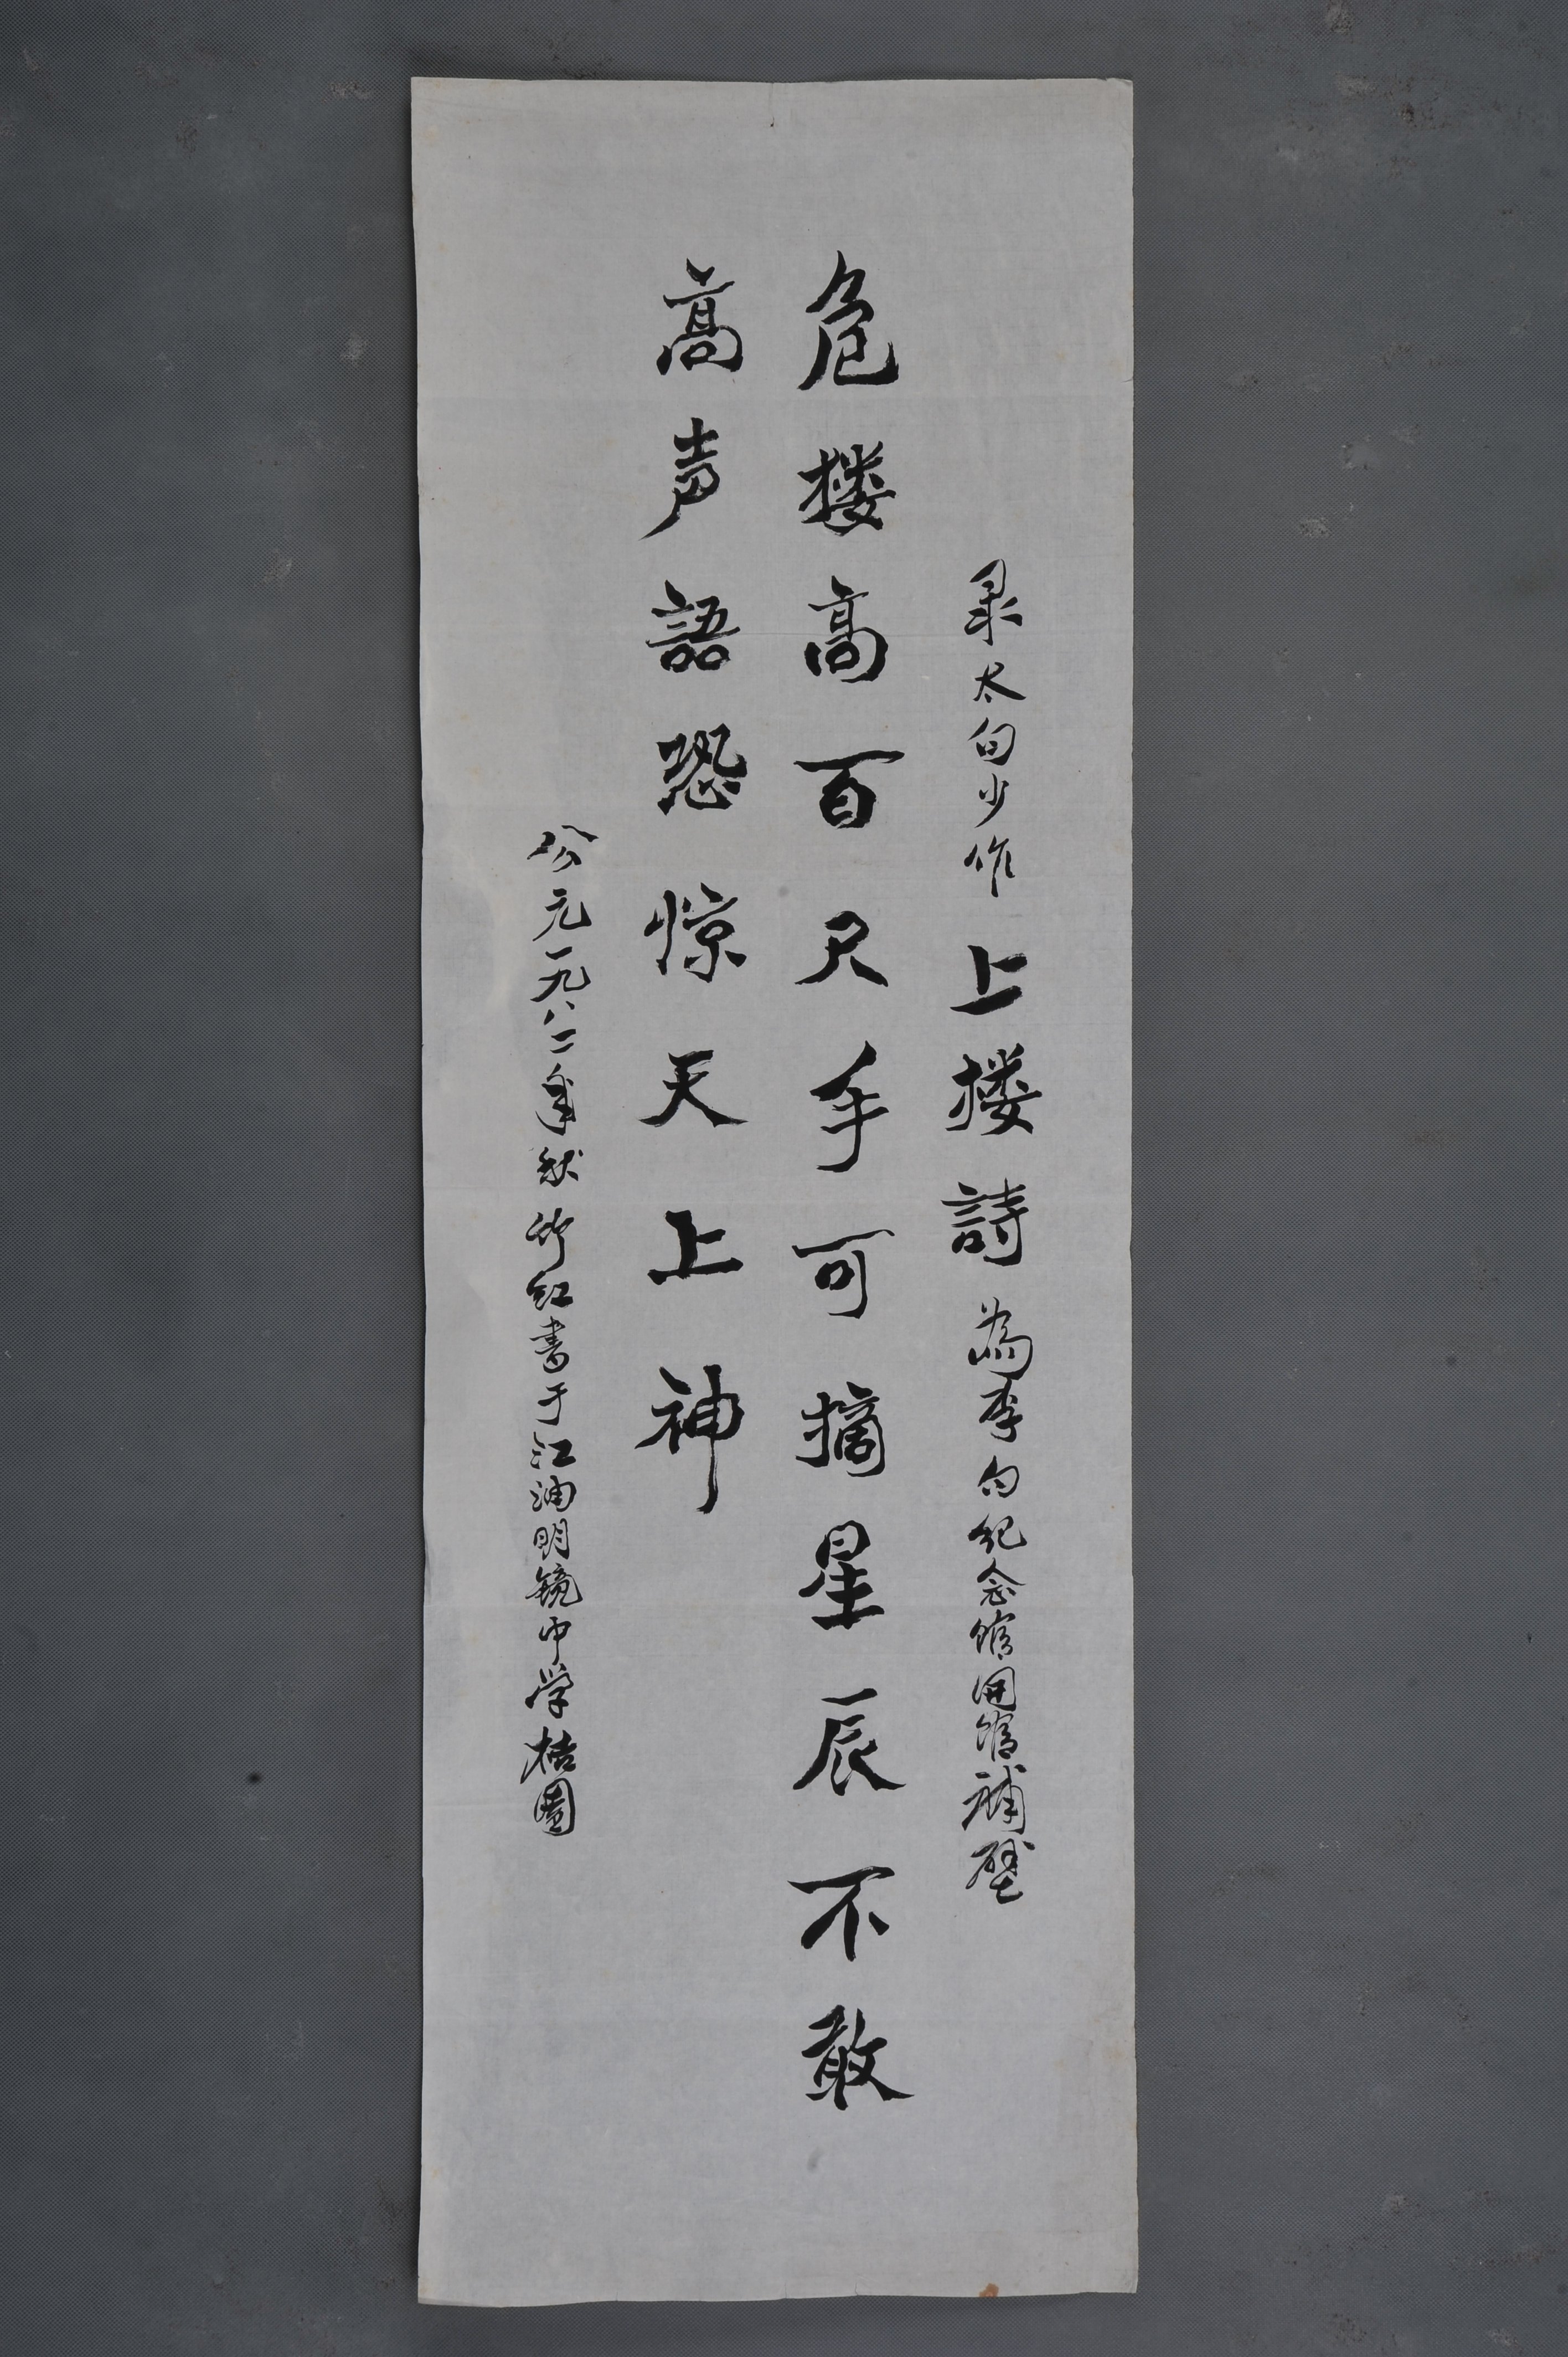 录太白少作上楼詩為李白纪念馆開馆補壁
危楼高百尺手可摘星辰不敢
高声語恐惊天上神
公元一九八二年秋竹虹書于江油明镜中学桔園